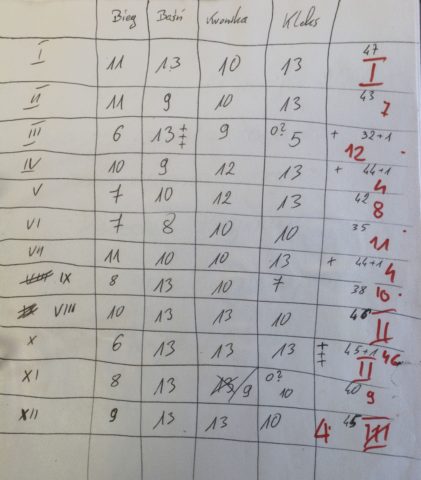 Bieg Baśń Kronika Kleks
I 11 13 10 13 47 I
II 11 9 10 13 43 7
III 6 13 9 0? 5 + 32+1 12
IV 10 9 12 13 + 44+1 4
V 7 10 12 13 42 8
VI 7 8 10 10 35 11
VII 11 10 10 13 + 44+1 4
IX 8 13 10 7 38 10
VIII 10 13 13 10 46 II
X 6 13 13 13 45+1 II 46
XI 8 13 13/9 0? 10 40 9
XII 9 13 13 10 4 45